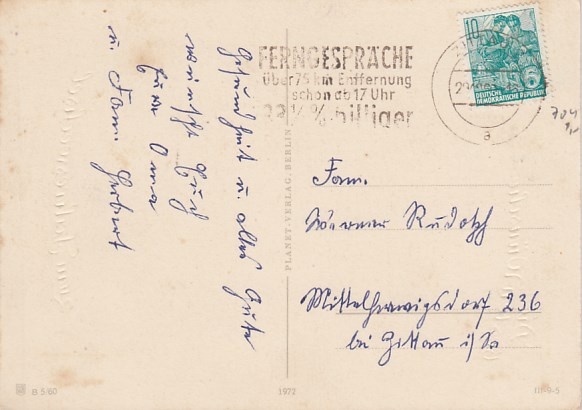 Gesundheit u. alles Gute
wünscht Euch
Eure Oma
u. Fam. Herbert
FERNGESPRÄCHE
über 75 km Entfernung
schon ab 17 Uhr
33⅓% billiger
10
DEUTSCHE
DEMOKRATISCHE REPUBLIK
a
704
PLANET-VERLAG, BERLIN
Fam.
Werner Rudolph
Mittelherwigsdorf 236
bei Zittau i/Sa
B 5/60
1972
III-9-5